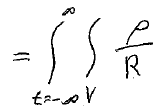 = ∫_{t=-∞}^{∞} ∫_V ρ/R